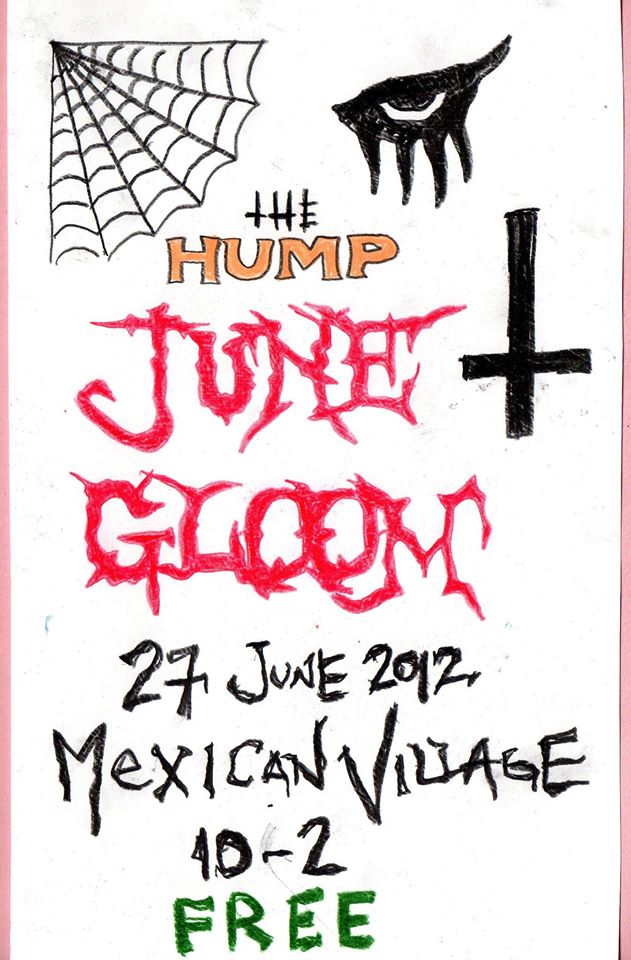 THE
HUMP
JUNE
GLOOM
27 JUNE 2012
MEXICAN VILLAGE
10-2
FREE